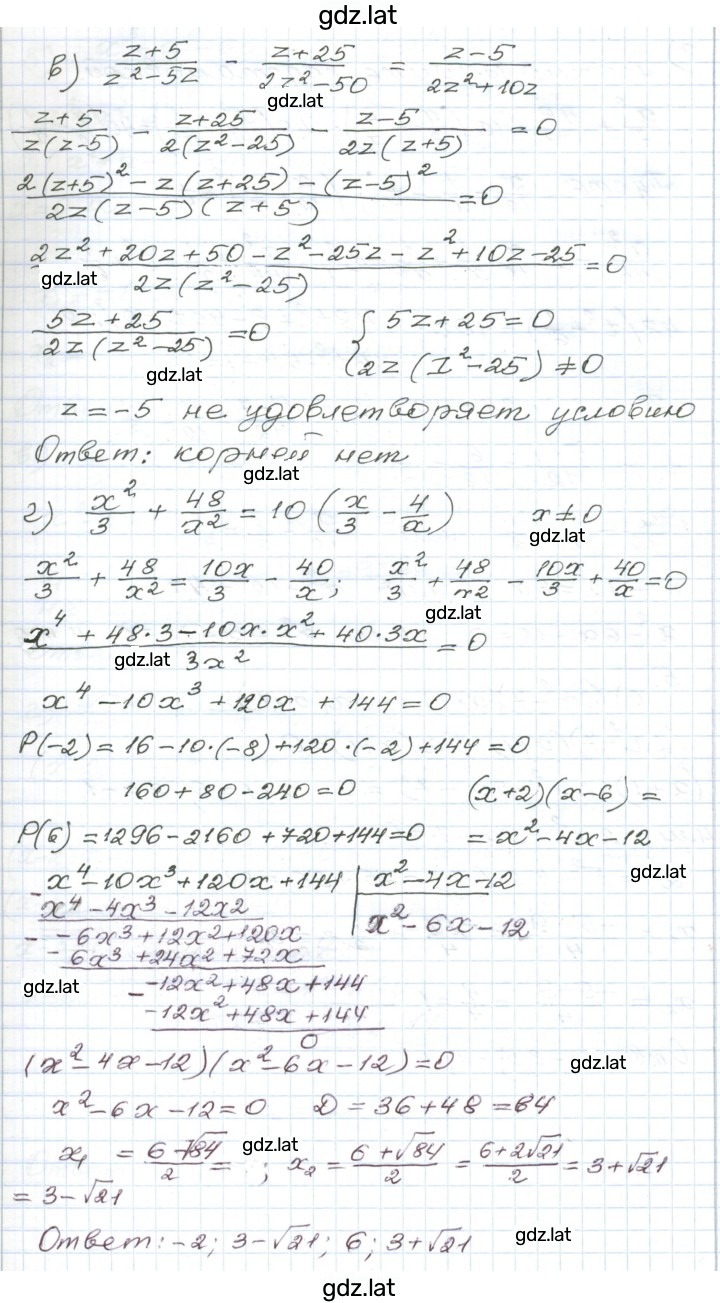 gdz.lat
в) (z+5)/(z²-5z) - (z+25)/(2z²-50) = (z-5)/(2z²+10z)
gdz.lat
(z+5)/(z(z-5)) - (z+25)/(2(z²-25)) - (z-5)/(2z(z+5)) = 0
(2(z+5)² - z(z+25) - (z-5)²)/(2z(z-5)(z+5)) = 0
(2z²+20z+50-z²-25z-z²+10z-25)/(2z(z²-25)) = 0
gdz.lat
(5z+25)/(2z(z²-25)) = 0 { 5z+25=0
2z(z²-25) ≠ 0
gdz.lat
z=-5 не удовлетворяет условию
Ответ: корней нет
gdz.lat
г) x²/3 + 48/x² = 10(x/3 - 4/x) x≠0
gdz.lat
x²/3 + 48/x² = 10x/3 - 40/x; x²/3 + 48/x² - 10x/3 + 40/x = 0
gdz.lat
(x⁴+48·3-10x·x²+40·3x)/(3x²) = 0
gdz.lat
x⁴-10x³+120x+144=0
P(-2)=16-10·(-8)+120·(-2)+144=0
160+80-240=0 (x+2)(x-6)=
P(6)=1296-2160+720+144=0 =x²-4x-12
gdz.lat
-x⁴-10x³+120x+144 | x²-4x-12
x⁴-4x³-12x2 | x²-6x-12
- -6x³+12x²+120x
-6x³+24x²+72x
gdz.lat
- -12x²+48x+144
-12x²+48x+144
0
(x²-4x-12)(x²-6x-12)=0
gdz.lat
x²-6x-12=0 D=36+48=84
x₁ = (6-√84)/2 = ; x₂ = (6+√84)/2 = (6+2√21)/2 = 3+√21
gdz.lat
=3-√21
Ответ: -2; 3-√21; 6; 3+√21
gdz.lat
gdz.lat